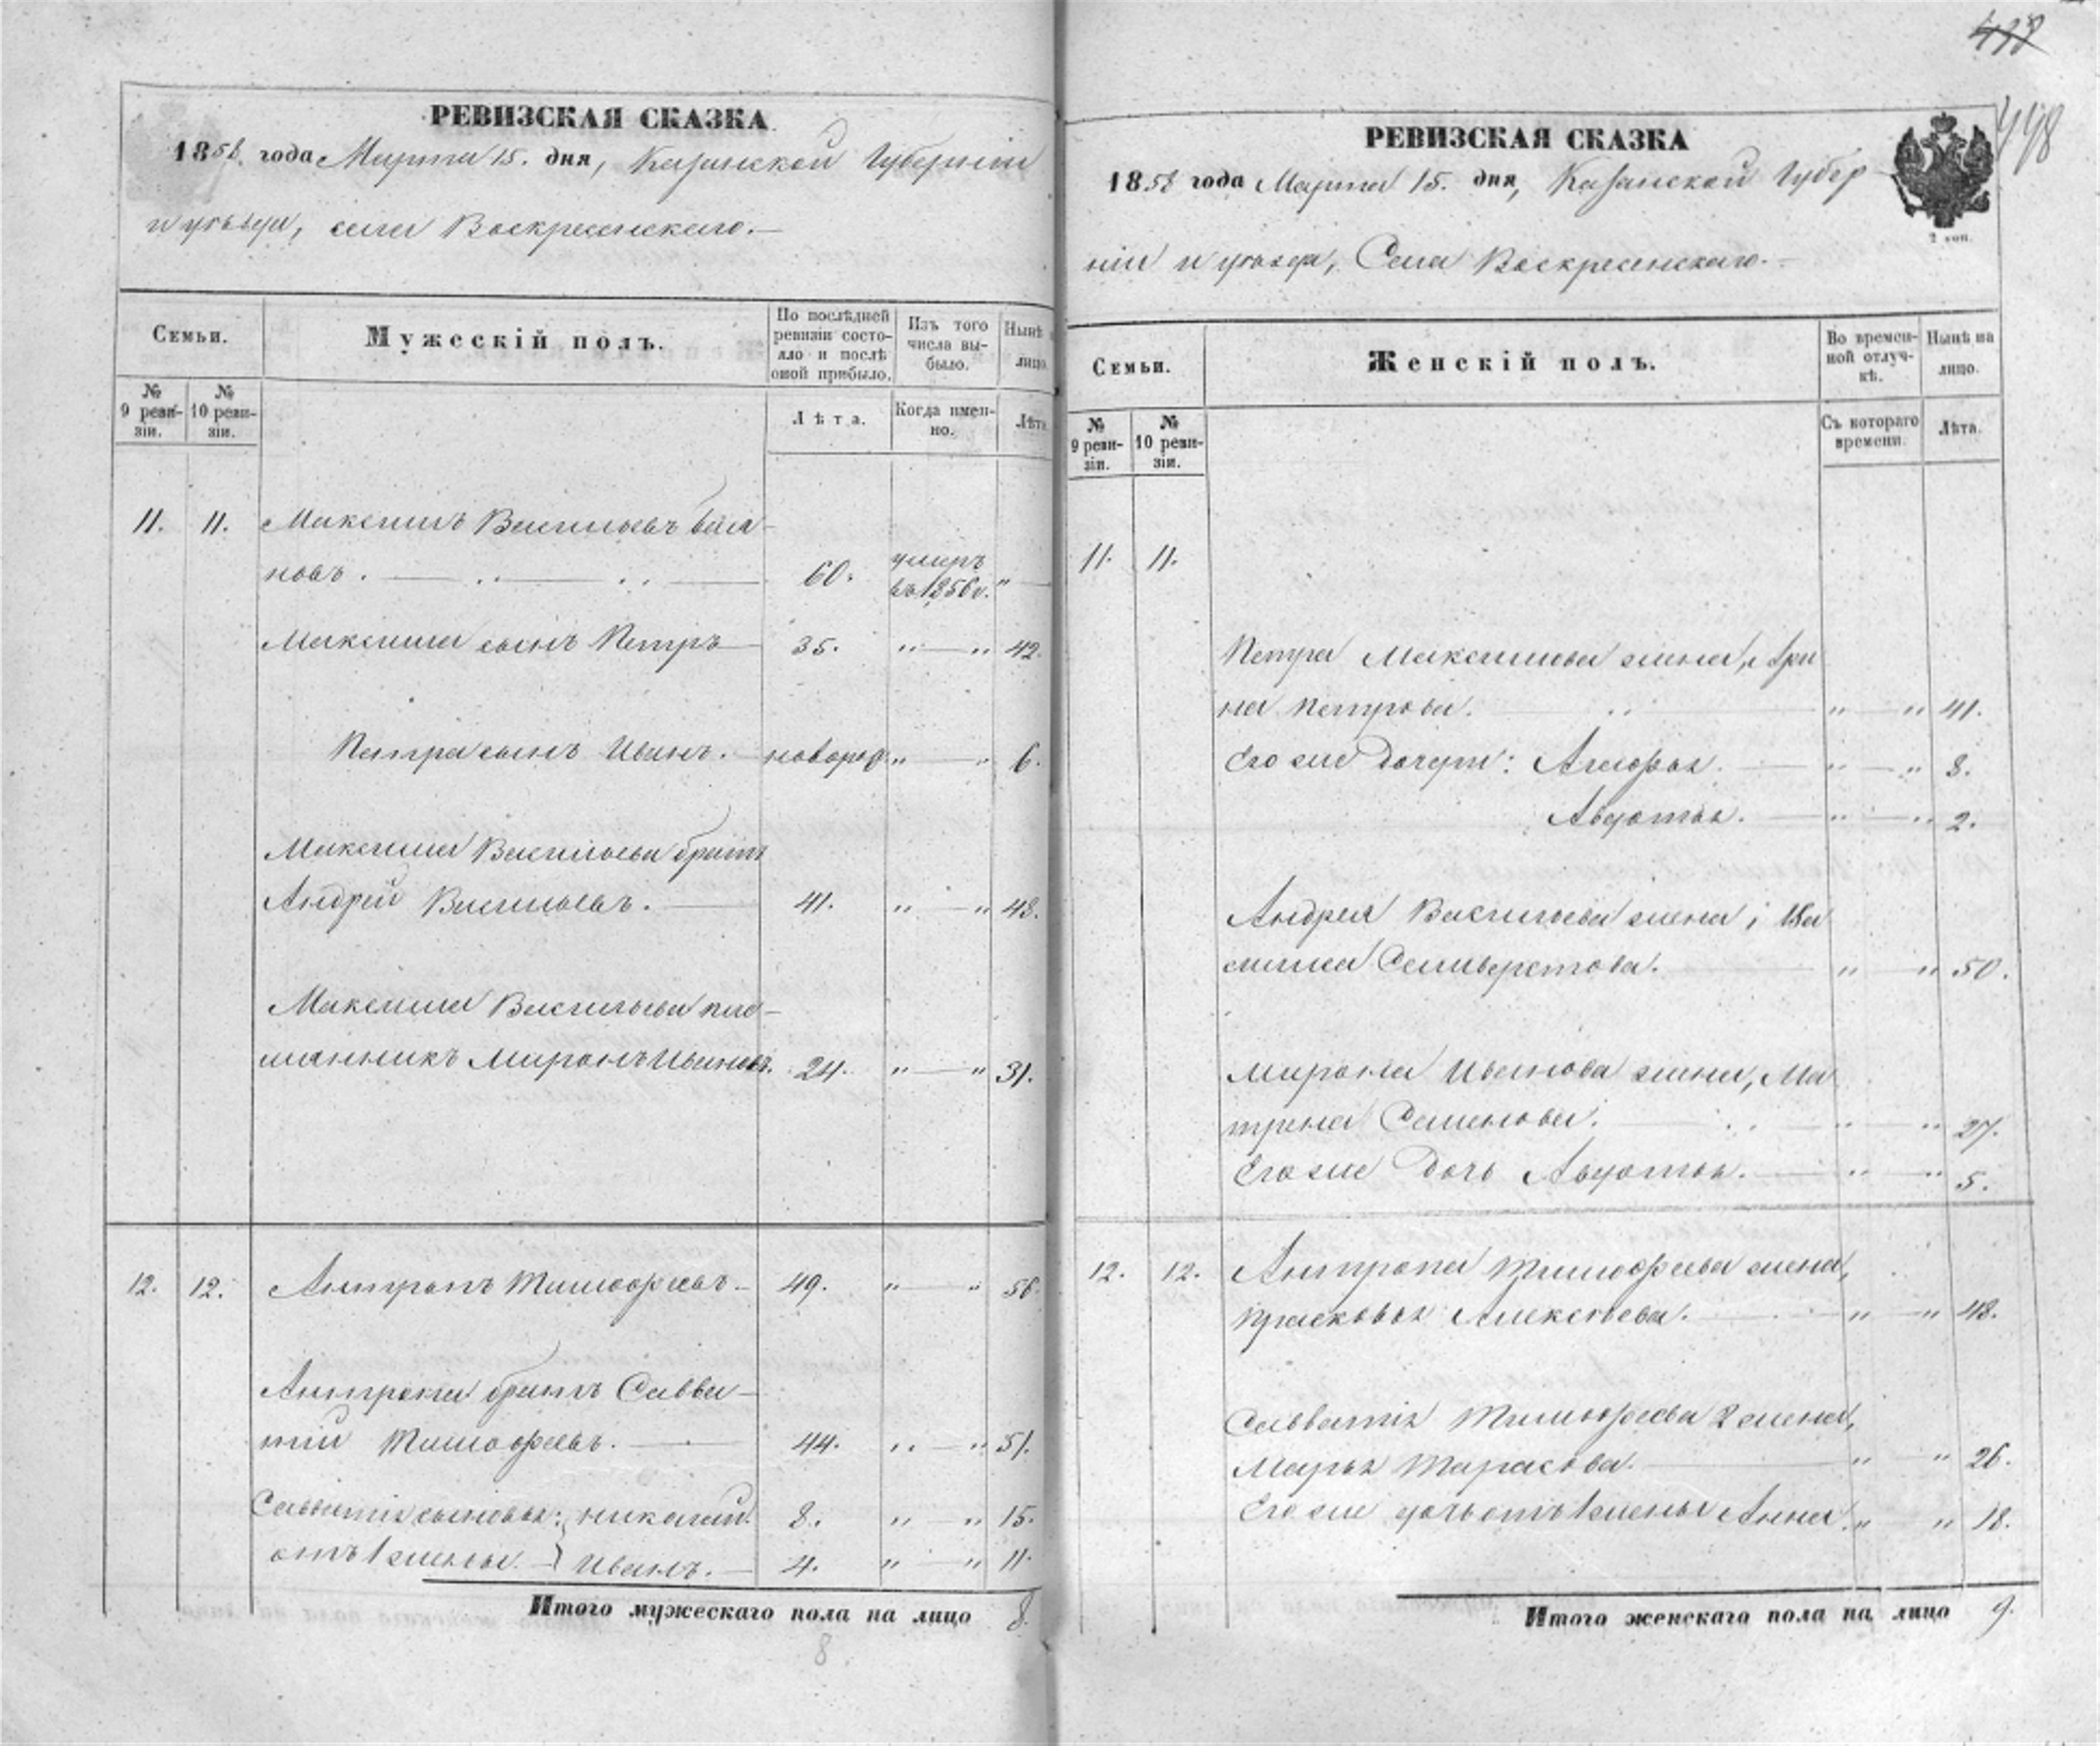 РЕВИЗСКАЯ СКАЗКА
1858. года Марта 15. дня, Казанской Губерніи
и уѣзда, села Воскресенскаго.
Семьи.
Мужескій полъ.
По послѣдней ревизіи состояло и послѣ оной прибыло.
Изъ того числа выбыло.
Нынѣ
лицо.
№ 9 ревизіи.
№ 10 ревизіи.
Лѣта.
Когда именно.
Лѣта
11. 11. Максимъ Васильевъ
новъ. 60. умеръ въ 1856 г. "
Максима сынъ Петръ 35. " " 42.
Петра сынъ Иванъ. новорож " " 6.
Максима Васильева братъ
Андрей Васильевъ. 41. " " 48.
Максима Васильева пле-
мянникъ Миронъ Ивановъ. 24. " " 31.
12. 12. Антропъ Тимофеевъ 49. " " 56.
Антропа братъ Савва-
тій Тимофеевъ. 44. " " 51.
Савватія сыновья: Николай 8. " " 15.
отъ 1 жены. Иванъ. 4. " " 11.
Итого мужескаго пола на лицо 8.
8.
438
448
РЕВИЗСКАЯ СКАЗКА
1858 года Марта 15. дня, Казанской Губер
ніи и уѣзда, Села Воскресенскаго.
2 коп.
Семьи.
Женскій полъ.
Во временной отлучкѣ.
Нынѣ на лицо.
№ 9 ревизіи.
№ 10 ревизіи.
Съ котораго времени.
Лѣта.
11. 11.
Петра Максимова жена, Ари
на Петрова. " " 41.
Его же дочери: Агафья. " " 8.
Авдотья. " " 2.
Андрея Васильева жена; Ва
силиса Селиверстова. " " 50.
Мирона Иванова жена, Ма
трена Семенова. " " 27.
Его же дочь Авдотья. " " 5.
12. 12. Антропа Тимофеева жена,
Прасковья Алексѣева. " " 48.
Савватія Тимофеева 2 жена,
Марья Тарасова. " " 26.
Его же дочь отъ 1 жены Анна. " " 18.
Итого женскаго пола на лицо 9.